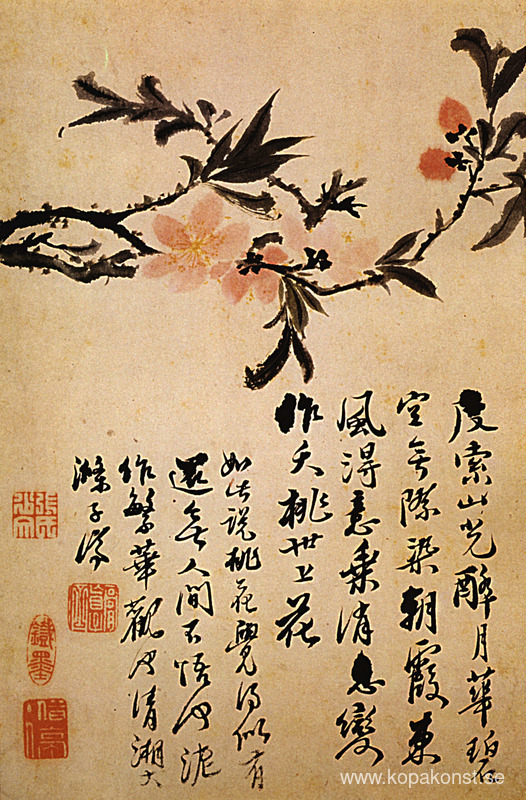 度索山光醉月華碧
空無際染朝霞東
風得意乘消息變
作夭桃世上花
如此說桃花覺得似有
還無人間不悟何泥
作繁華觀也清湘大
滌子濟
www.kopakonst.se